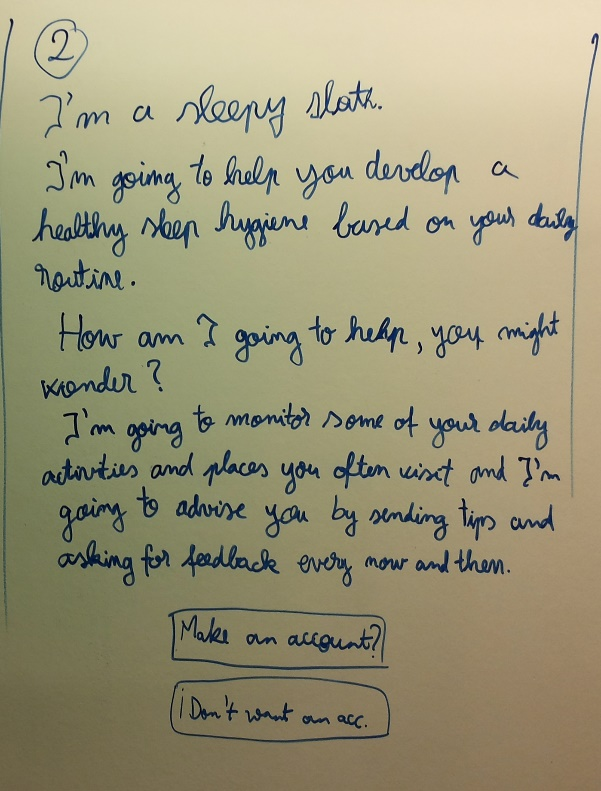 2
I'm a sleepy sloth.
I'm going to help you develop a
healthy sleep hygiene based on your daily
routine.
How am I going to help, you might
wonder?
I'm going to monitor some of your daily
activities and places you often visit and I'm
going to advise you by sending tips and
asking for feedback every now and then.
Make an account?
I Don't want an acc.